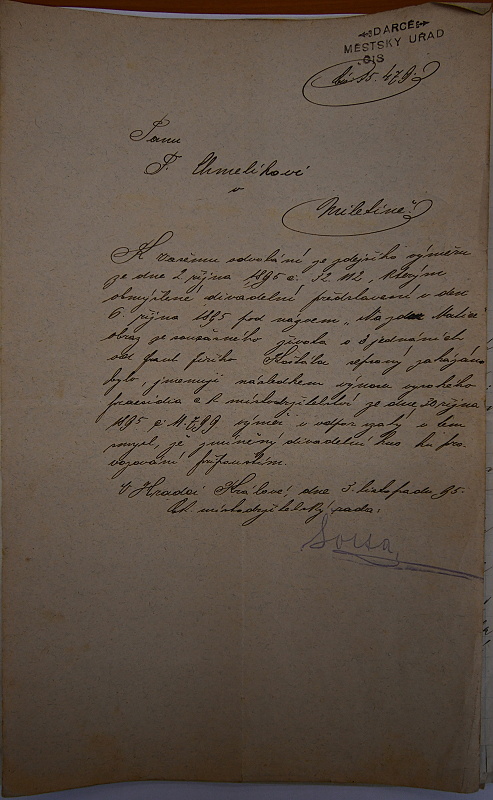 DARCE
MĚSTSKÝ ÚŘAD
ČIS
Panu
F. Chmelíkovi
v
Miletíně!
K Vašemu odvolání ze zdejšího výměru
ze dne 2 října 1895 č. 32.112, kterým
obmýšlené divadelní představení v den
6. října 1895 pod názvem „
obraz ze současného života o 3 jednáních
od Košťála sepsaný zakázáno
bylo, následkem výnosu vysokého
praesidia c. k. místodržitelství ze dne 30 října
1895 č. 11.799 výměr v odpor vzatý v tom
smysl, že zmíněný divadelní kus ku pro
vozování připouštím.
V Hradci Králové, dne 3. listopadu 95.
C. k. místodržitelský rada: